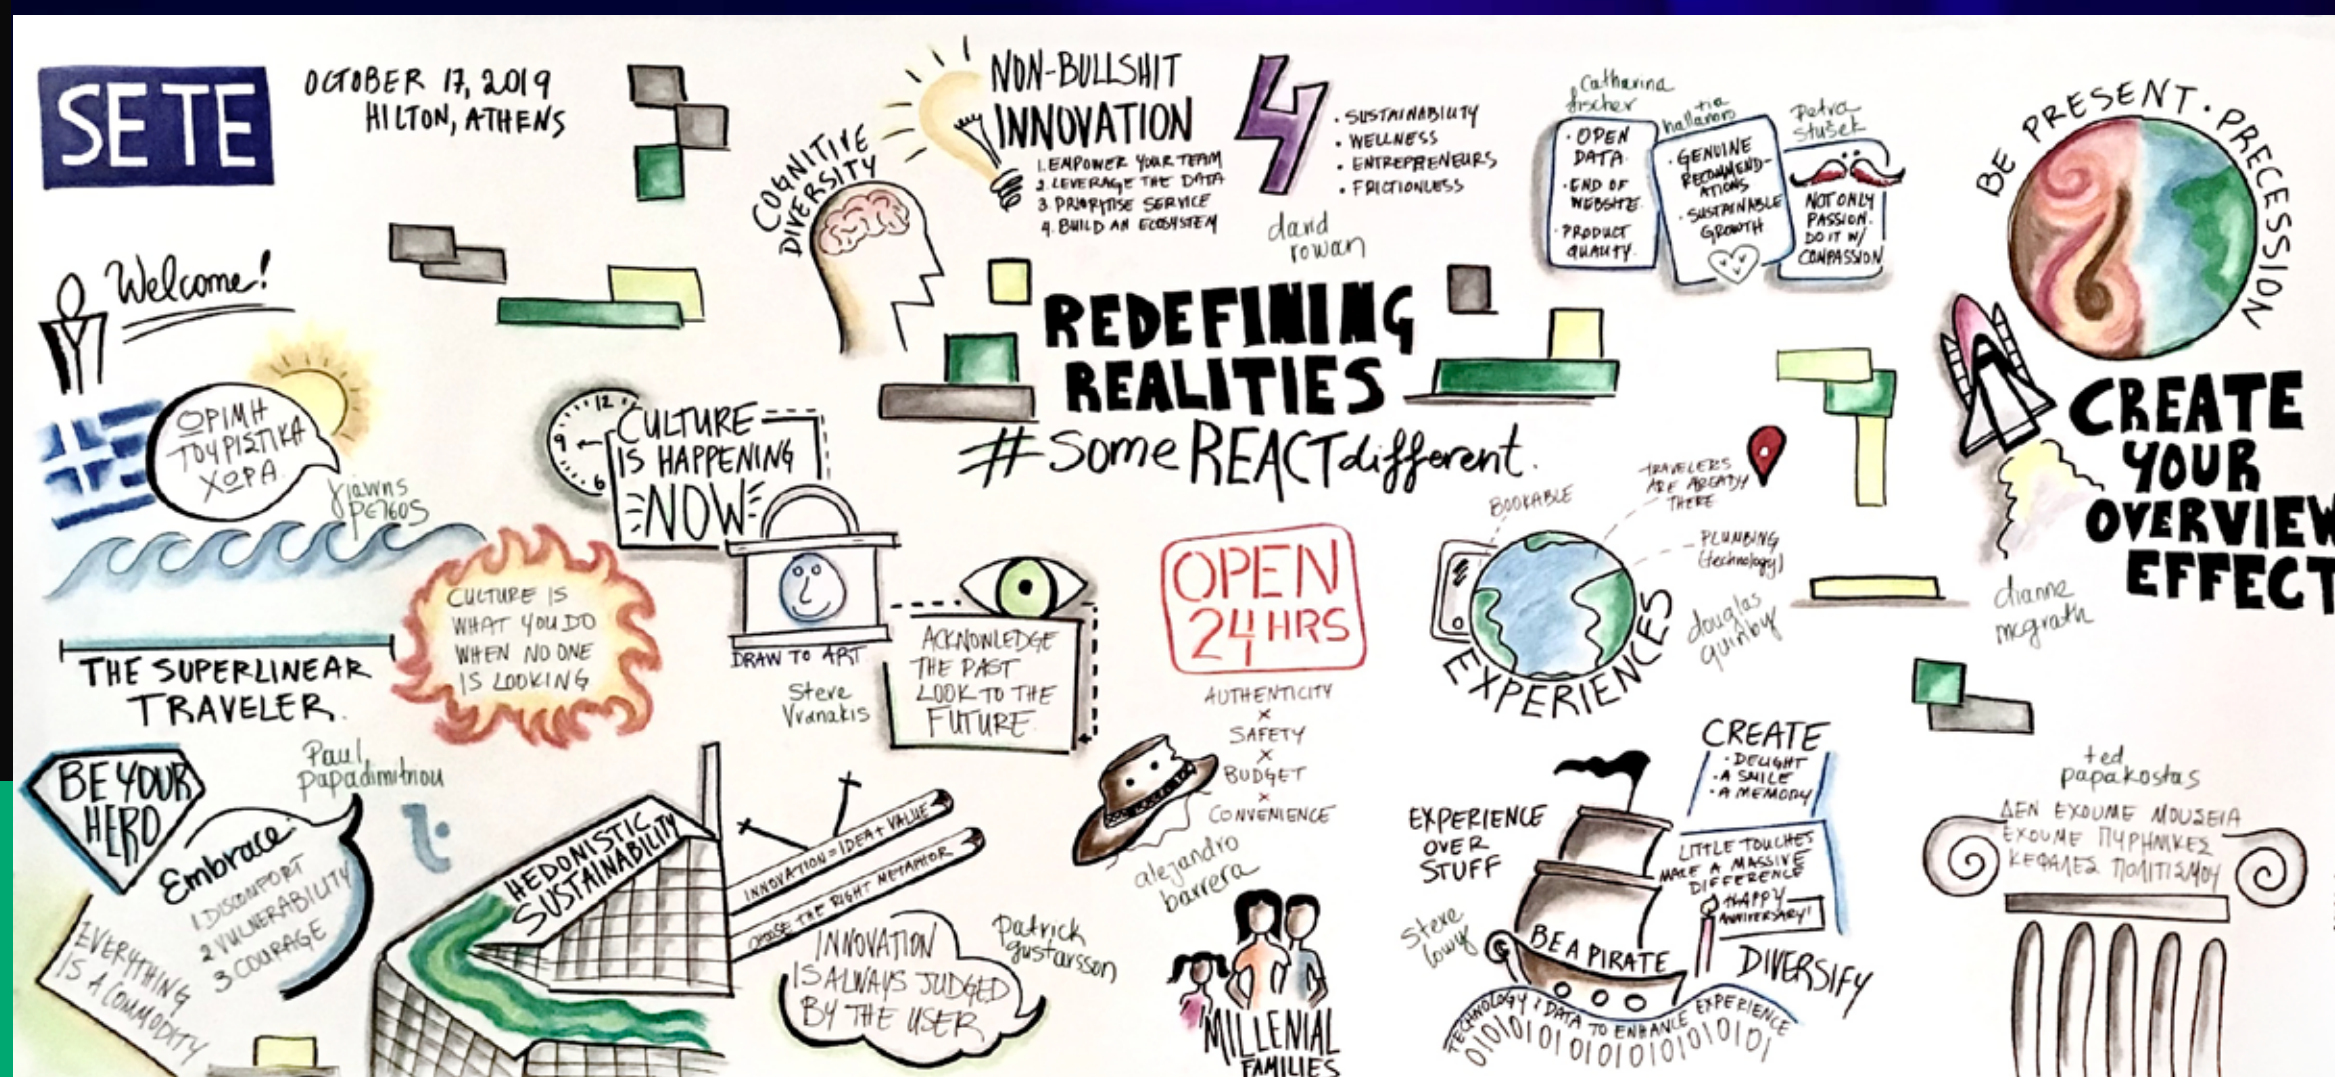 SETE
OCTOBER 17, 2019
HILTON, ATHENS
Welcome!
ΩΡΙΜΗ
ΤΟΥΡΙΣΤΙΚΑ
ΧΩΡΑ.
THE SUPERLINEAR
TRAVELER.
CULTURE IS
WHAT YOU DO
WHEN NO ONE
IS LOOKING
BE YOUR
HERO
Paul
papadimitriou
Embrace
1 DISCOMFORT
2 VULNERABILITY
3 COURAGE
EVERYTHING
IS A COMMODITY
12
9
6
CULTURE
IS HAPPENING
NOW
DRAW TO ART
Steve
Vranakis
ACKNOWLEDGE
THE PAST
LOOK TO THE
FUTURE.
HEDONISTIC
SUSTAINABILITY
INNOVATION = IDEA + VALUE
CHOOSE THE RIGHT METAPHOR
INNOVATION
IS ALWAYS JUDGED
BY THE USER
Patrick
gustarsson
COGNITIVE
DIVERSITY
NON-BULLSHIT
INNOVATION
1. EMPOWER YOUR TEAM
2. LEVERAGE THE DATA
3. PRIORITISE SERVICE
4. BUILD AN ECOSYSTEM
4
• SUSTAINABILITY
• WELLNESS
• ENTREPRENEURS
• FRICTIONLESS
david
rowan
REDEFINING
REALITIES
#SomeREACTdifferent.
OPEN
24 HRS
AUTHENTICITY
x
SAFETY
x
BUDGET
x
CONVENIENCE
alejandro
barrera
MILLENIAL
FAMILIES
Catharina
fischer
• OPEN
DATA.
• END OF
WEBSITE.
• PRODUCT
QUALITY.
tia
hallanoro
• GENUINE
RECOMMEND-
ATIONS
• SUSTAINABLE
GROWTH
Petra
stušek
NOT ONLY
PASSION.
DO IT W/
COMPASSION
BOOKABLE
TRAVELERS
ARE ALREADY
THERE
PLUMBING
(technology)
EXPERIENCES
douglas
quinby
EXPERIENCE
OVER
STUFF
steve
lowy
CREATE
• DELIGHT
• A SMILE
• A MEMORY
LITTLE TOUCHES
MAKE A MASSIVE
DIFFERENCE
HAPPY
ANNIVERSARY!
BE A PIRATE
DIVERSIFY
TECHNOLOGY & DATA TO ENHANCE EXPERIENCE
BE PRESENT. PRECESSION
CREATE
YOUR
OVERVIEW
EFFECT
dianne
mcgrath
ted
papakostas
ΔΕΝ ΕΧΟΥΜΕ ΜΟΥΣΕΙΑ
ΕΧΟΥΜΕ ΠΥΡΗΝΙΚΕΣ
ΚΕΦΑΛΕΣ ΠΟΛΙΤΙΣΜΟΥ